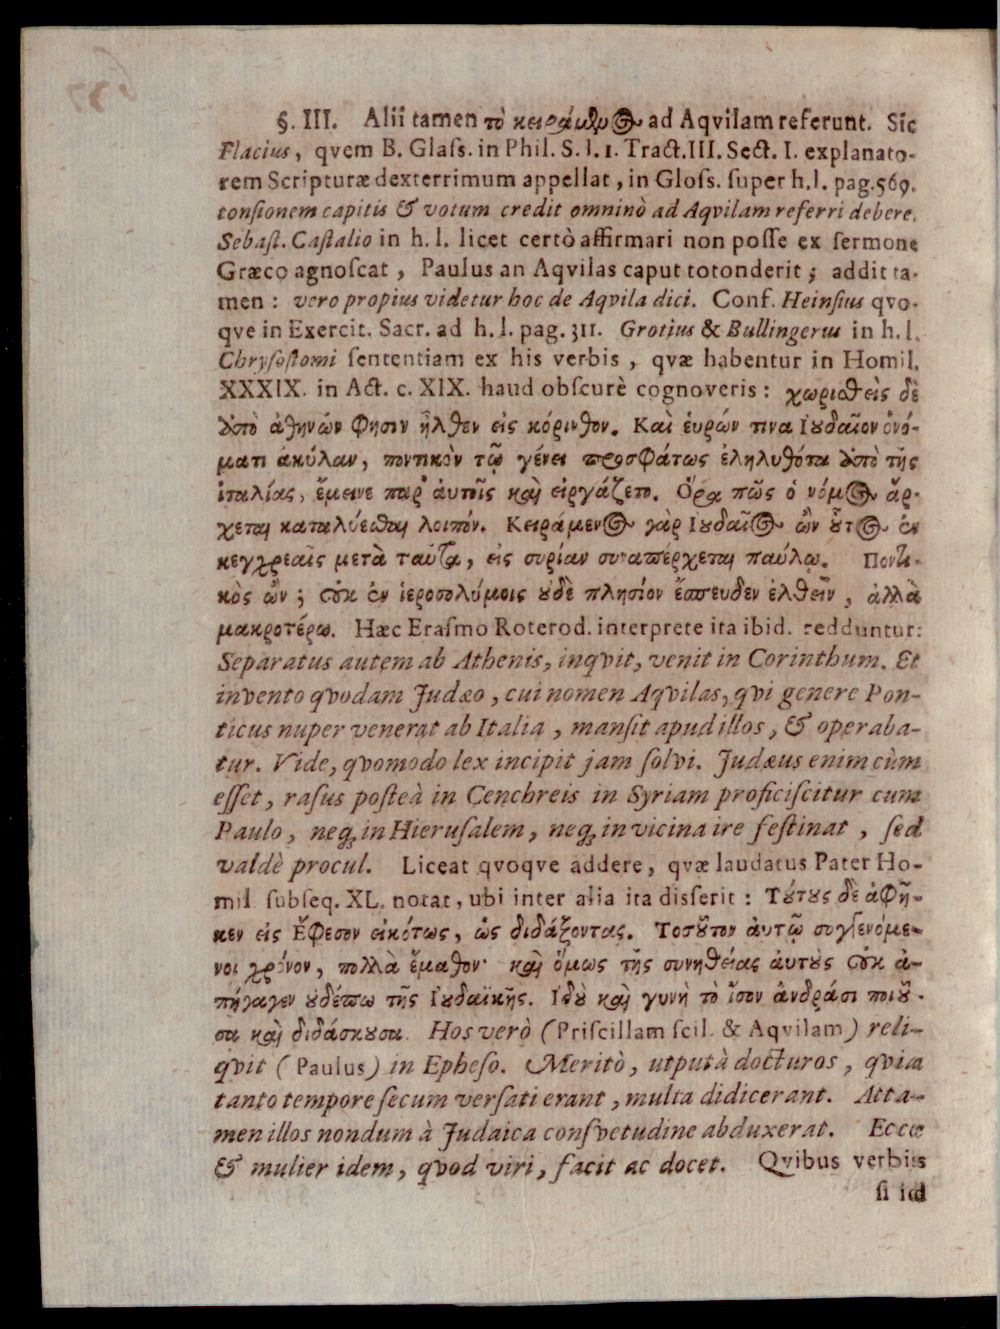 §. III. Alii tamen τὸ κειράμενος ad Aqvilam referunt. Sic
Flacius, qvem B. Glaſs. in Phil. S. l. 1. Tract. III. Sect. I. explanato-
rem Scripturæ dexterrimum appellat, in Gloſs. ſuper h. l. pag. 569.
tonſionem capitis & votum credit omninò ad Aqvilam referri debere.
Sebaſt. Caſtalio in h. l. licet certò affirmari non poſſe ex ſermone
Græco agnoſcat, Paulus an Aqvilas caput totonderit; addit ta-
men: vero propius videtur hoc de Aqvila dici. Conf. Heinſius qvo-
qve in Exercit. Sacr. ad h. l. pag. 311. Grotius & Bullingerus in h. l.
Chryſoſtomi ſententiam ex his verbis, qvæ habentur in Homil.
XXXIX. in Act. c. XIX. haud obſcurè cognoveris: χωριθεὶς δὲ
ἀπὸ ἀθηνών φησιν ἦλθεν εἰς κόρινθον. Καὶ ἑυρών τινα Ιουδαῖον ὀνό-
ματι ἀκύλαν, ποντικὸν τῷ γένει προσφάτως ἐληλυθότα ἀπὸ τῆς
ἰταλίας, ἔμεινε παρ' ἀυτοῖς καὶ εἰργάζετο. Ορα πῶς ὁ νόμος ἄρ-
χεται καταλύεσθαι λοιπόν. Κειράμενος γὰρ Ιουδαῖος ὢν οὗτος ἐν
κεγχρεαῖς μετὰ ταῦτα, εἰς συρίαν συναπέρχεται παύλῳ. Ποντι-
κὸς ὢν; οὐκ ἐν ἱεροσολύμοις ουδὲ πλησίον ἔσπευδεν ἐλθεῖν, ἀλλὰ
μακροτέρω. Hæc Eraſmo Roterod. interprete ita ibid. redduntur:
Separatus autem ab Athenis, inqvit, venit in Corinthum. Et
invento qvodam Judæo, cui nomen Aqvilas, qvi genere Pon-
ticus nuper venerat ab Italia, manſit apud illos, & operaba-
tur. Vide, qvomodo lex incipit jam ſolvi. Judæus enim cùm
eſſet, raſus poſteà in Cenchreis in Syriam proficiſcitur cum
Paulo, neq; in Hieruſalem, neq; in vicina ire feſtinat, ſed
valdè procul. Liceat qvoqve addere, qvæ laudatus Pater Ho-
mil ſubſeq. XL. notat, ubi inter alia ita disſerit: Τούτους δὲ ἀφῆ-
κεν εἰς Ἔφεσον εἰκότως, ὡς διδάξοντας. Τοσοῦτον ἀυτῷ συγγενόμε-
νοι χρόνον, πολλὰ ἔμαθον· καὶ ὅμως τῆς συνηθείας ἀυτοὺς οὐκ ἀ-
πήγαγεν ουδέπω τῆς Ιουδαϊκῆς. Ιδοὺ καὶ γυνὴ τὸ ἴσον ἀνδράσι ποιοῦ-
σα καὶ διδάσκουσα. Hos verò (Priſcillam ſcil. & Aqvilam) reli-
qvit (Paulus) in Epheſo. Meritò, utputà docturos, qvia
tanto tempore ſecum verſati erant, multa didicerant. Atta-
men illos nondum à Judaica conſvetudine abduxerat. Ecce
& mulier idem, qvod viri, facit ac docet. Qvibus verbis
ſi id